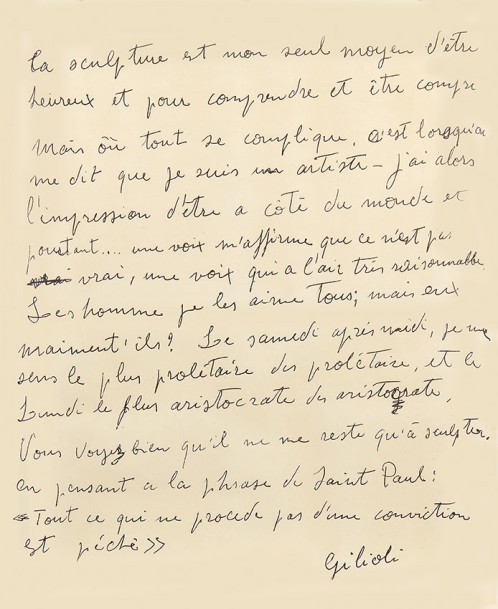 La sculpture est mon seul moyen d'être
heureux et pour comprendre et être compr
mais où tout se complique, c'est lorsqu'on
me dit que je suis un artiste - j'ai alors
l'impression d'être a côté du monde et
pourtant.... une voix m'affirme que ce n'est pas
vrai vrai, une voix qui a l'air très raisonnable
Les homme je les aime tous; mais eux
m'aiment'ils? Le samedi après midi, je me
sens le plus prolétaire des prolétaire, et le
Lundi le plus aristocrate des aristocrate,
Vous voyez bien qu'il ne me reste qu'à sculpter.
en pensant a la phrase de Saint Paul:
<<Tout ce qui ne procède pas d'une conviction
est péché>>
Gilioli